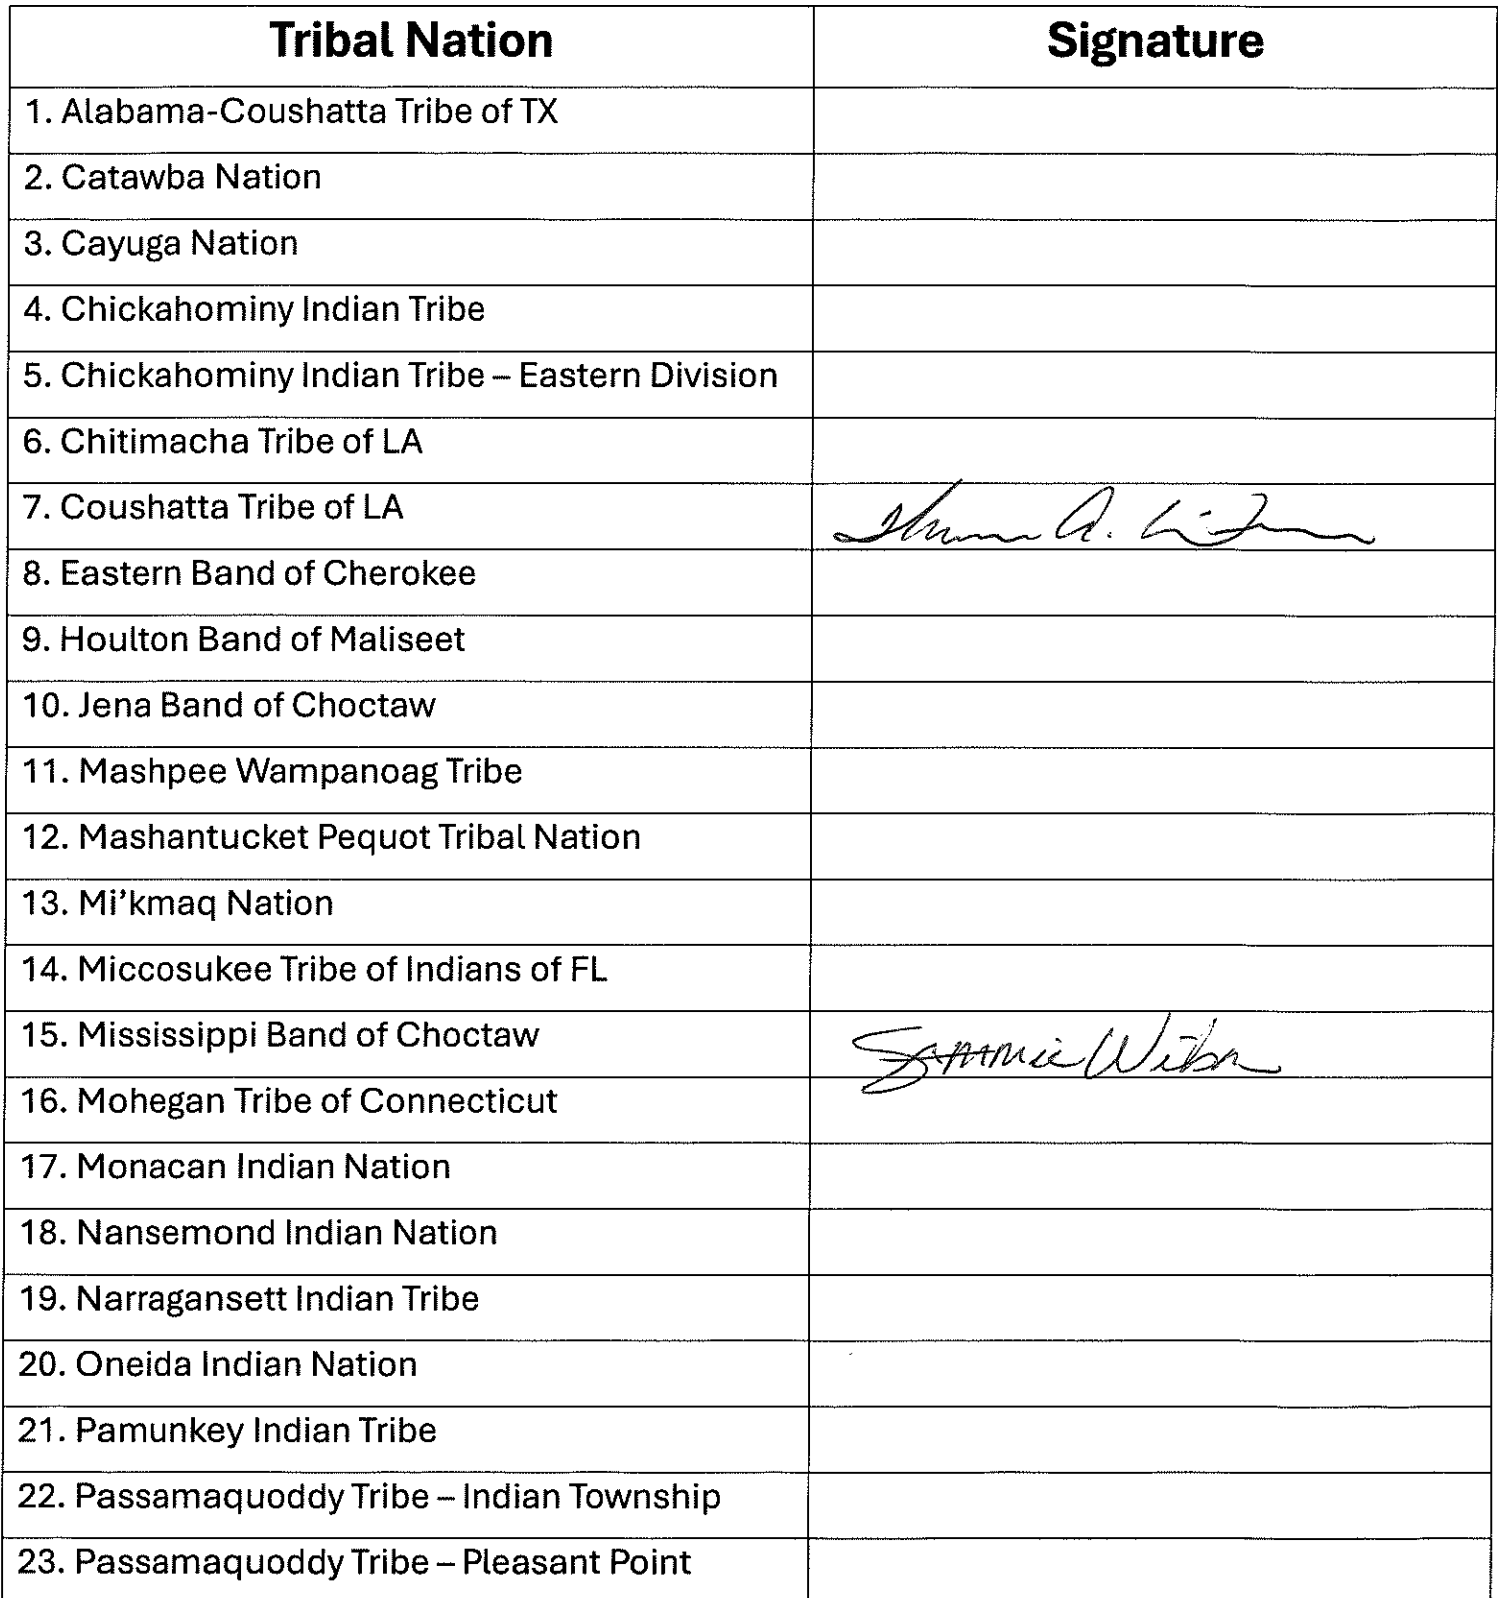 Tribal Nation Signature
1. Alabama-Coushatta Tribe of TX
2. Catawba Nation
3. Cayuga Nation
4. Chickahominy Indian Tribe
5. Chickahominy Indian Tribe – Eastern Division
6. Chitimacha Tribe of LA
7. Coushatta Tribe of LA A.
8. Eastern Band of Cherokee
9. Houlton Band of Maliseet
10. Jena Band of Choctaw
11. Mashpee Wampanoag Tribe
12. Mashantucket Pequot Tribal Nation
13. Mi’kmaq Nation
14. Miccosukee Tribe of Indians of FL
15. Mississippi Band of Choctaw Sammie Wilson
16. Mohegan Tribe of Connecticut
17. Monacan Indian Nation
18. Nansemond Indian Nation
19. Narragansett Indian Tribe
20. Oneida Indian Nation
21. Pamunkey Indian Tribe
22. Passamaquoddy Tribe – Indian Township
23. Passamaquoddy Tribe – Pleasant Point